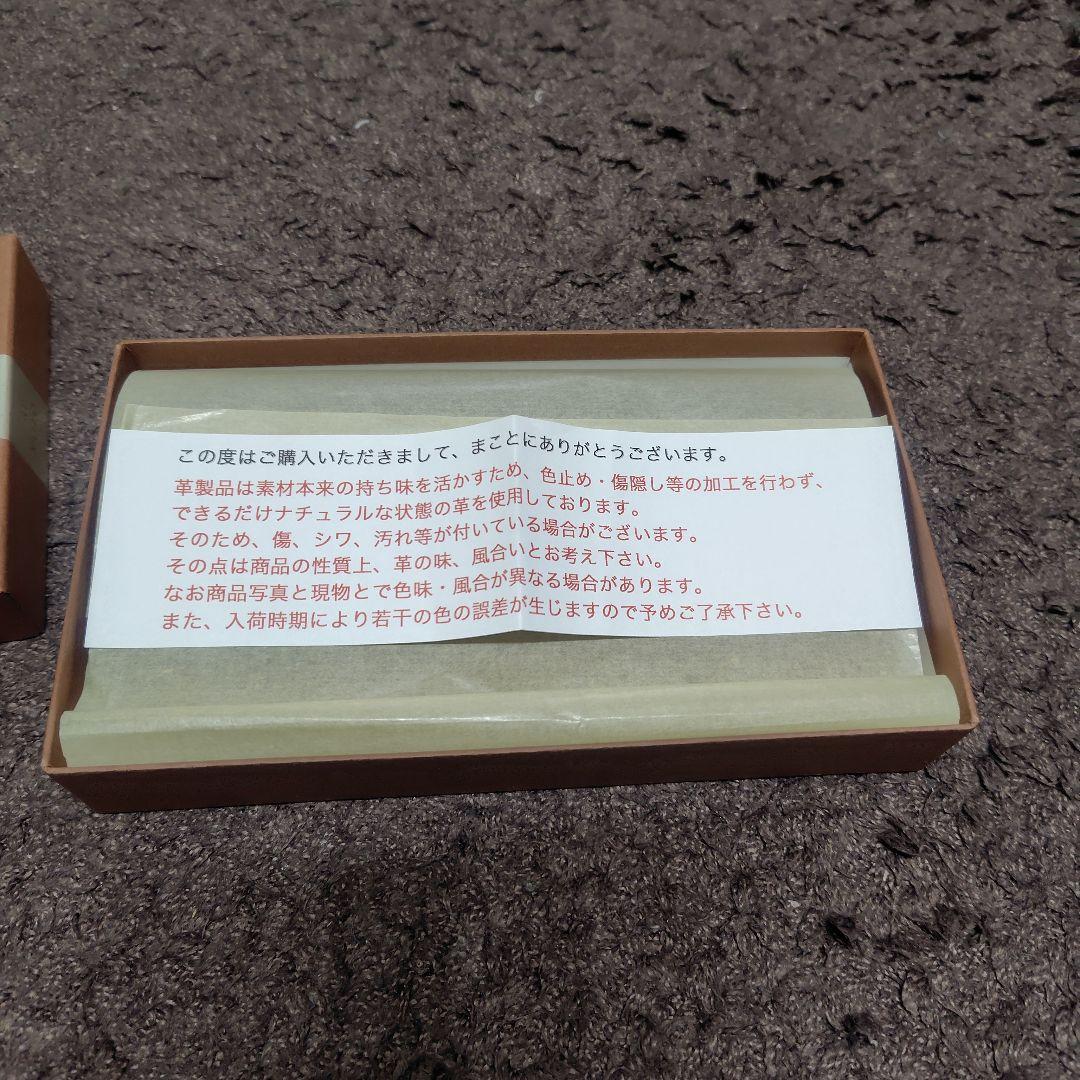 この度はご購入いただきまして、まことにありがとうございます。
革製品は素材本来の持ち味を活かすため、色止め・傷隠し等の加工を行わず、
できるだけナチュラルな状態の革を使用しております。
そのため、傷、シワ、汚れ等が付いている場合がございます。
その点は商品の性質上、革の味、風合いとお考え下さい。
なお商品写真と現物とで色味・風合が異なる場合があります。
また、入荷時期により若干の色の誤差が生じますので予めご了承下さい。